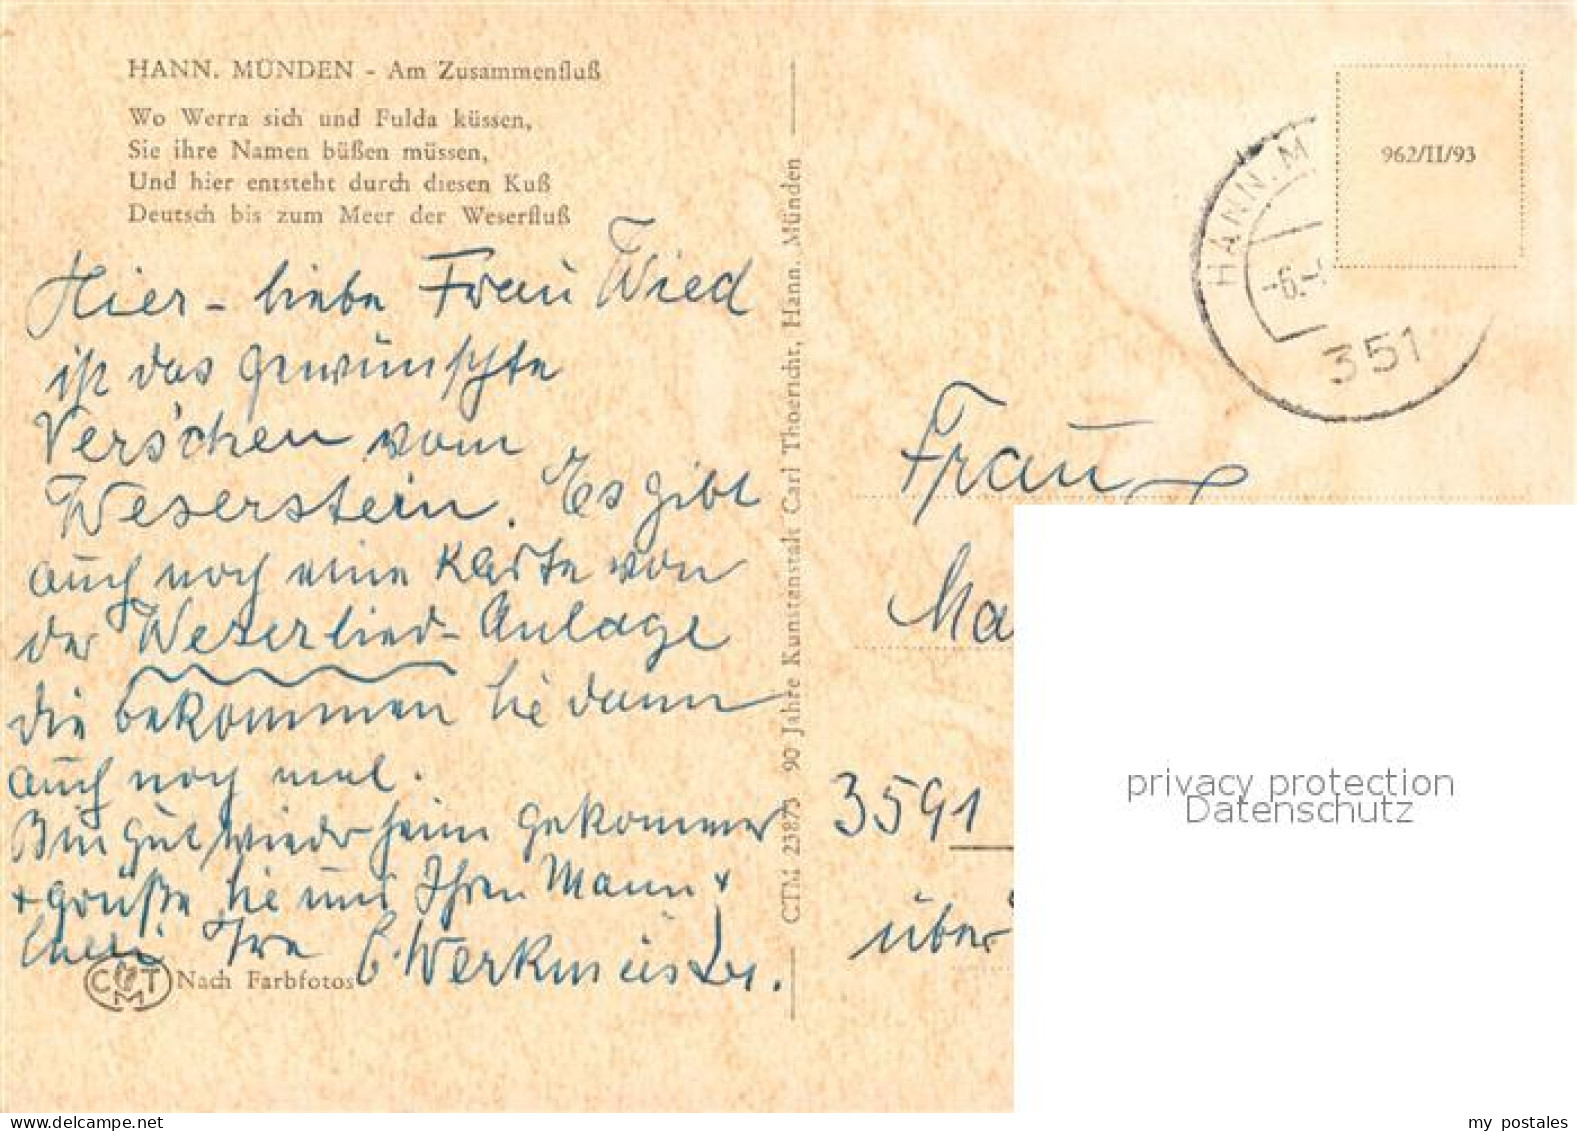 HANN. MÜNDEN - Am Zusammenfluß
Wo Werra sich und Fulda küssen,
Sie ihre Namen büßen müssen,
Und hier entsteht durch diesen Kuß
Deutsch bis zum Meer der Weserfluß
Hier - liebe Frau Wied
ist das gewünschte
Vers'chen vom
Weserstein. Es gibt
auch noch eine Karte von
der Weserlied-Anlage
die bekommen Sie dann
auch noch mal.
Bin gut wieder heim gekommen
+ grüße Sie und Ihren Mann +
Ihre E. Werkmeister.
CMT Nach Farbfotos
CTM 23873 90 Jahre Kunstanstalt Carl Thoericht, Hann. Münden
962/II/93
HANN. M
-6.-
351
Frau
Ma
3591
über
privacy protection
Datenschutz
my postales